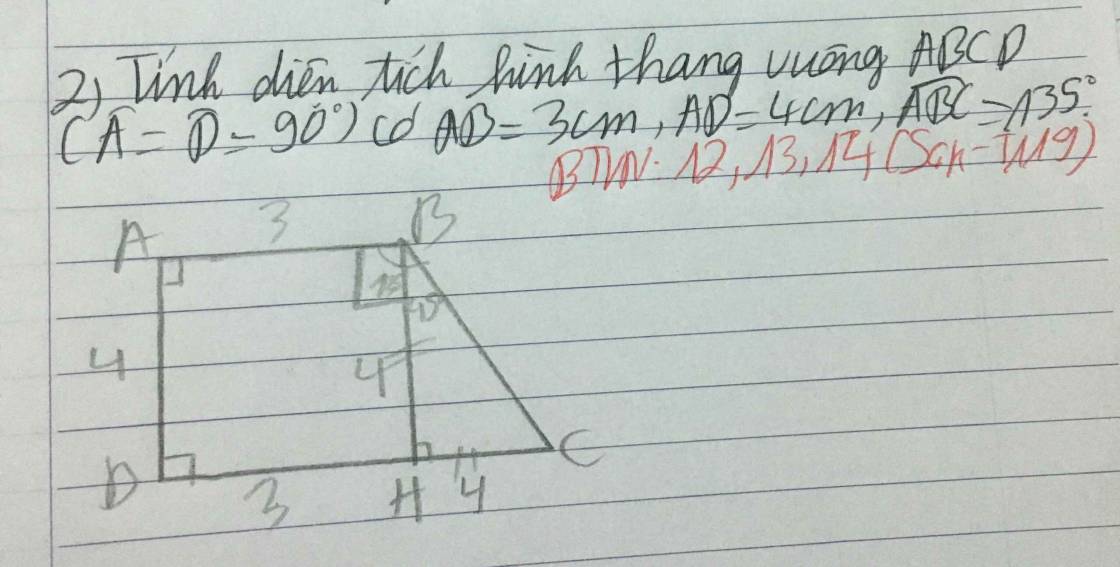 2) Tính diện tích hình thang vuông ABCD
(Â = D̂ = 90°) có AB = 3cm, AD = 4cm, ABC = 135°.
BTVN: 12, 13, 14 (Sgk - T119)
3
A B
4
4
D H C
3 4